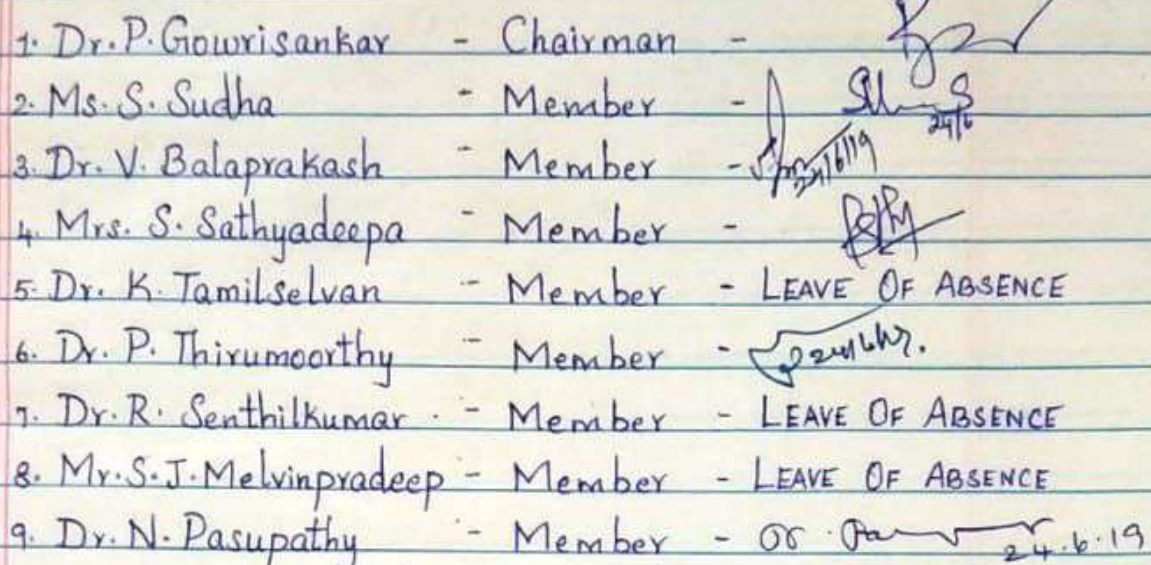 1. Dr. P. Gowrisankar - Chairman -
2. Ms. S. Sudha - Member - 24/6
3. Dr. V. Balaprakash - Member - 24/6/19
4. Mrs. S. Sathyadeepa - Member -
5. Dr. K. Tamilselvan - Member - LEAVE OF ABSENCE
6. Dr. P. Thirumoorthy - Member -
7. Dr. R. Senthilkumar - Member - LEAVE OF ABSENCE
8. Mr. S. J. Melvinpradeep - Member - LEAVE OF ABSENCE
9. Dr. N. Pasupathy - Member - 24.6.19